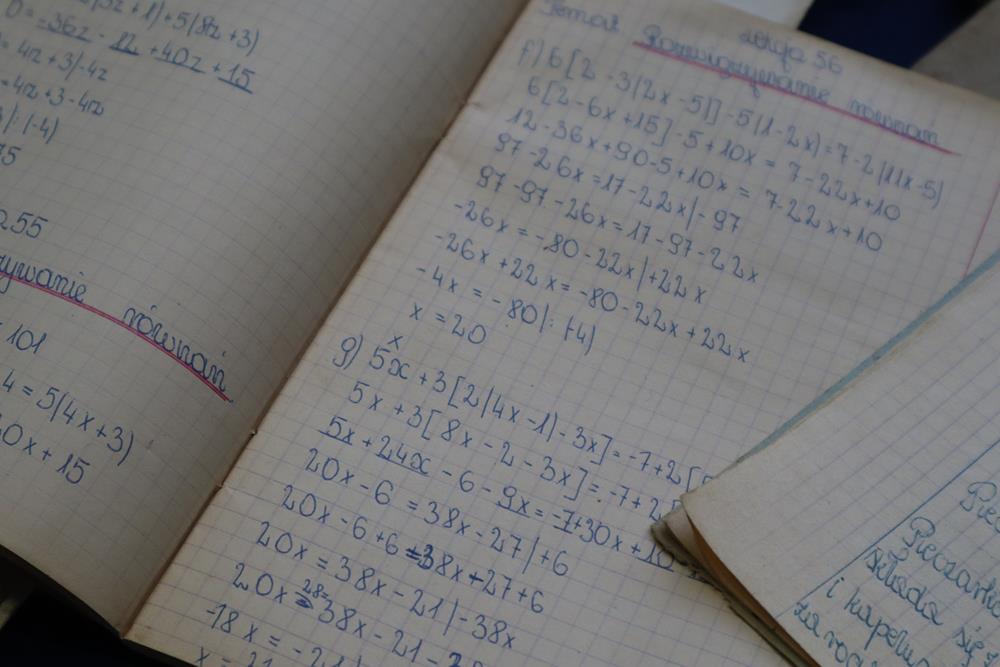 (3z + 1) + 5(8z + 3)
0 = -36z - 12 + 40z + 15
= 4z + 3 /-4z
= 4z + 3 - 4z
/: (-4)
55
równań
101
4 = 5(4x + 3)
0x + 15
Lekcja 56
Temat Rozwiązywanie równań
f) 6[2 - 3(2x - 5)] - 5(1 - 2x) = 7 - 2(11x - 5)
6[2 - 6x + 15] - 5 + 10x = 7 - 22x + 10
12 - 36x + 90 - 5 + 10x = 7 - 22x + 10
97 - 26x = 17 - 22x /- 97
97 - 97 - 26x = 17 - 97 - 22x
-26x = -80 - 22x /+22x
-26x + 22x = -80 - 22x + 22x
-4x = -80 /: (-4)
x = 20
g) 5x + 3[2(4x - 1) - 3x] = -7 + 2[
5x + 3[8x - 2 - 3x] = -7 + 2
5x + 24x - 6 - 9x = -7 + 30x + 
20x - 6 = 38x - 27 /+6
20x - 6 + 6 = 38x - 27 + 6
20x = 38x - 21 /-38x
20x - 38x - 21 -
-18x = -21
x = 21
Pieczarki
i kapelu